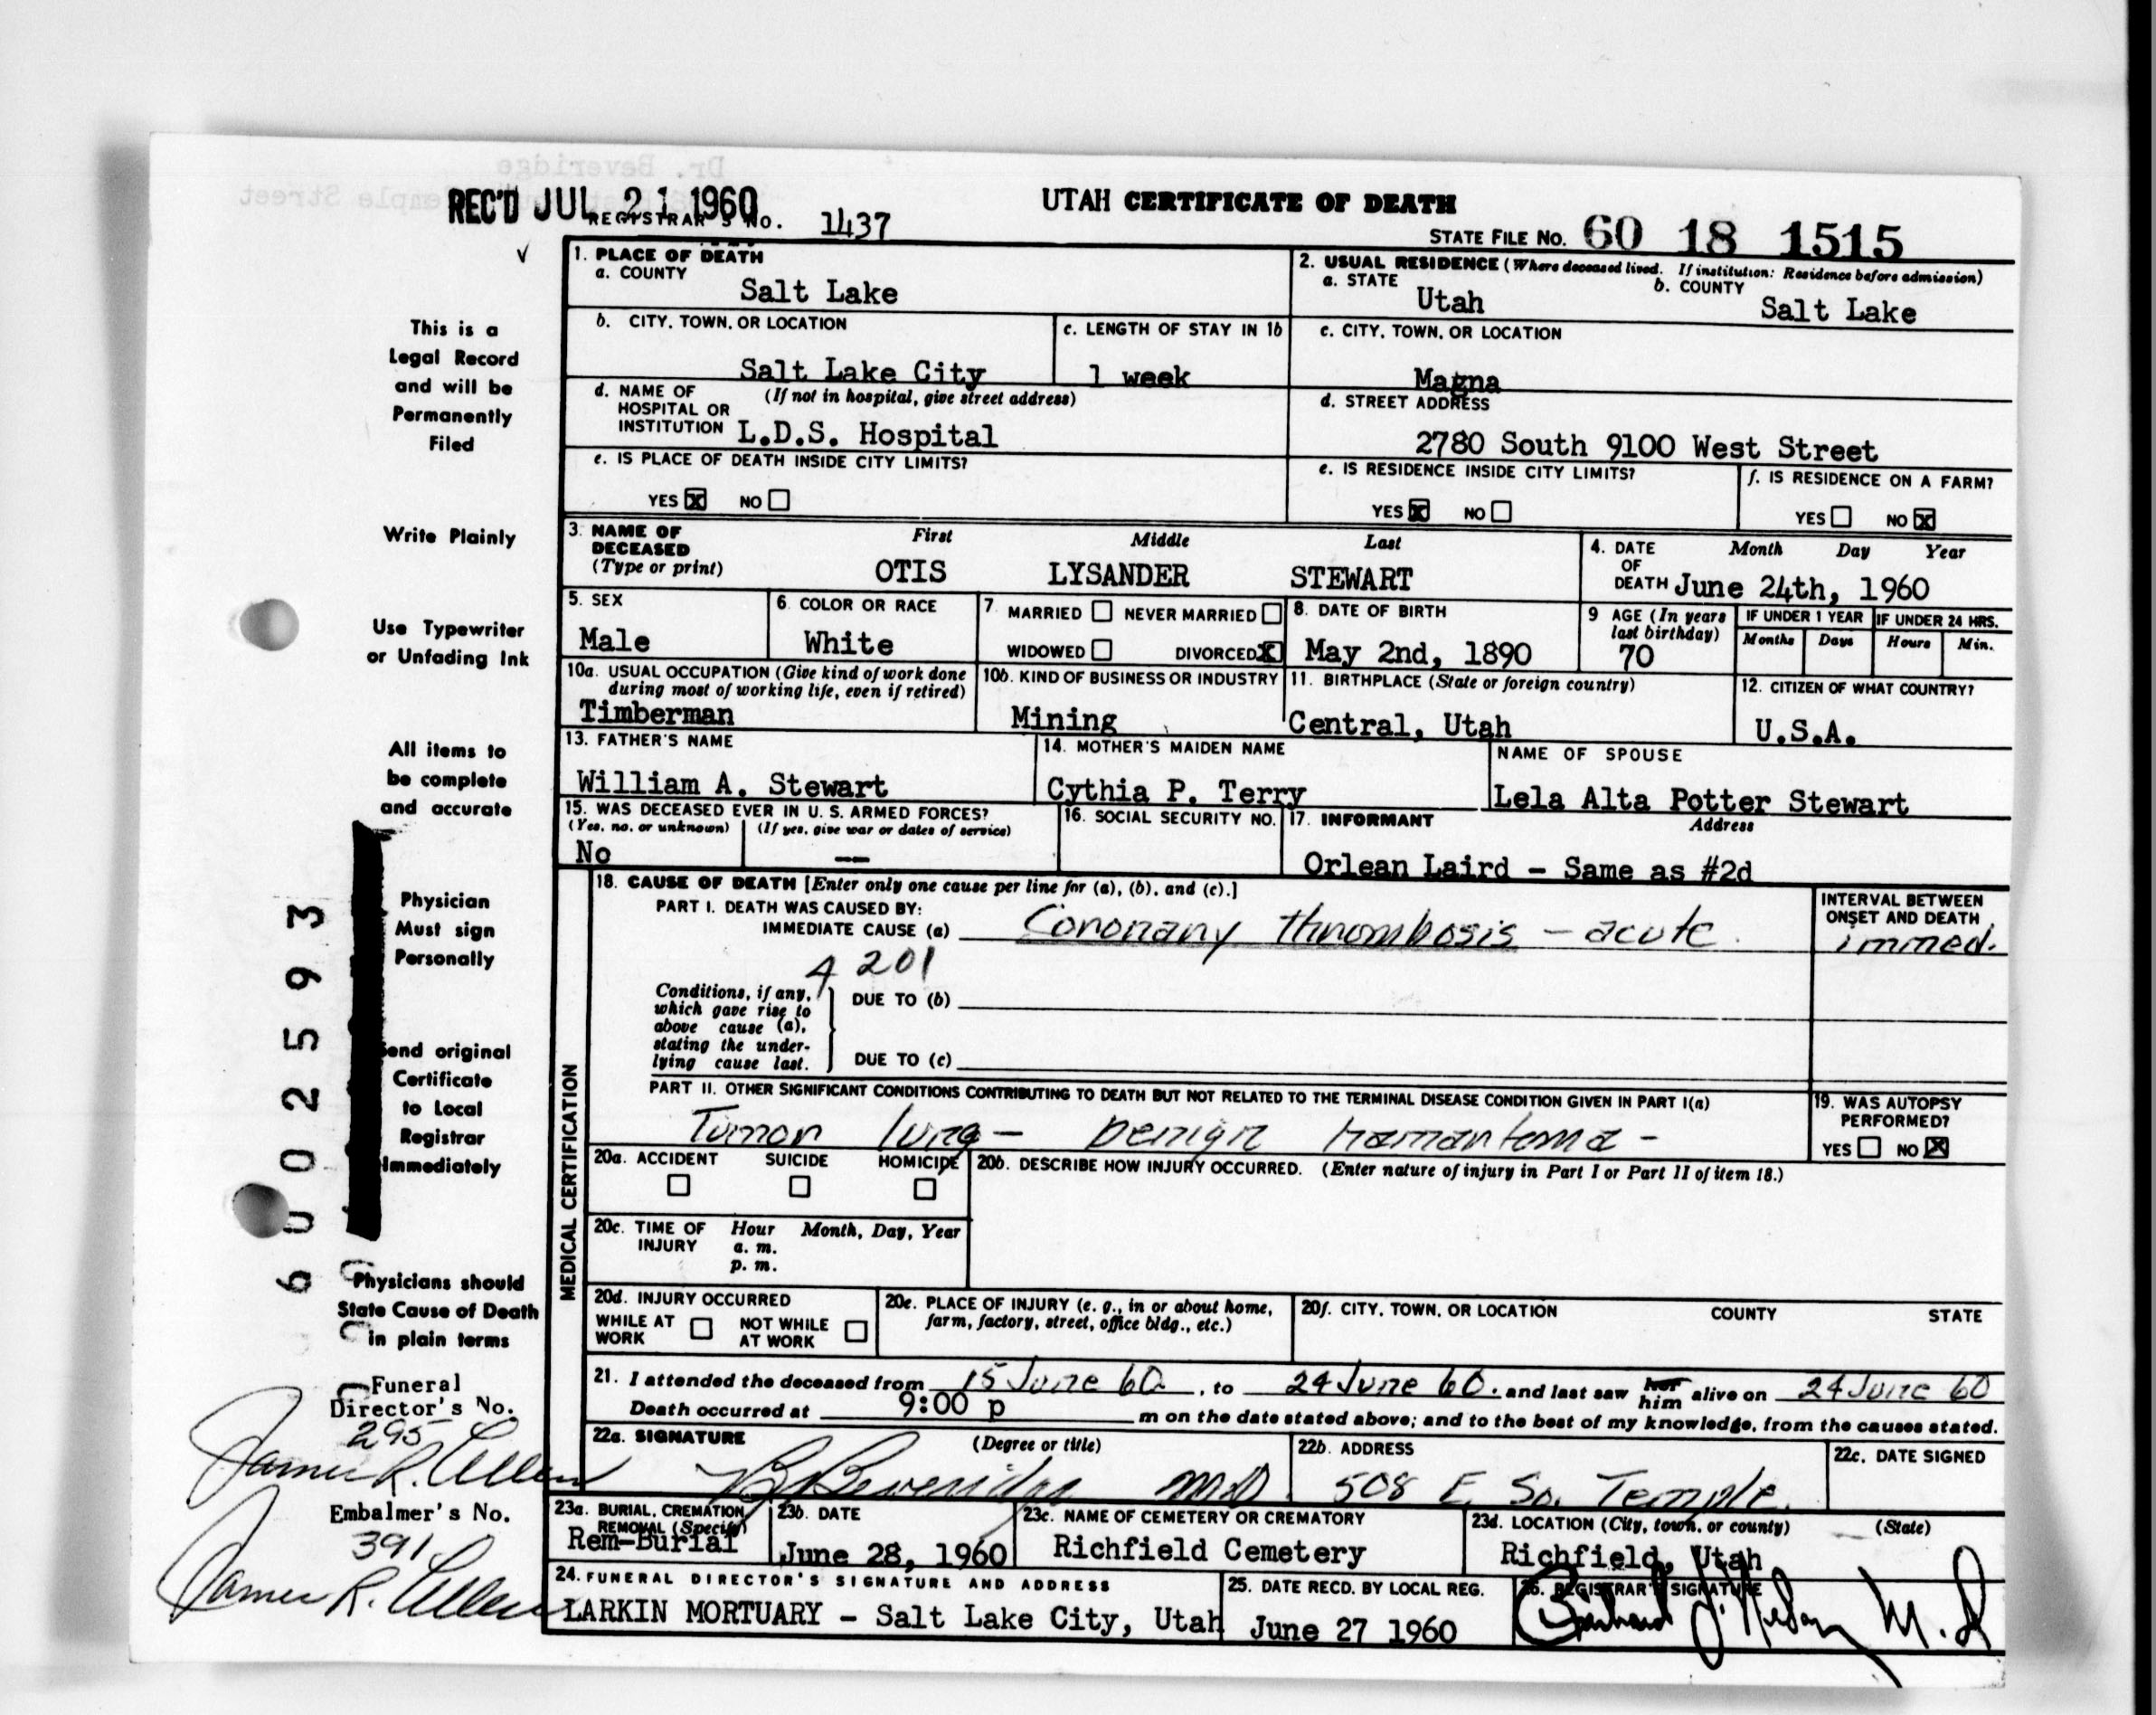 REC'D JUL 21 1960
REGISTRAR'S NO. 1437
UTAH CERTIFICATE OF DEATH
STATE FILE NO. 60 18 1515
1. PLACE OF DEATH
a. COUNTY
Salt Lake
2. USUAL RESIDENCE (Where deceased lived. If institution: Residence before admission)
a. STATE Utah
b. COUNTY Salt Lake
b. CITY, TOWN, OR LOCATION
Salt Lake City
c. LENGTH OF STAY IN 1b
1 week
c. CITY, TOWN, OR LOCATION
Magna
d. NAME OF HOSPITAL OR INSTITUTION (If not in hospital, give street address)
L.D.S. Hospital
d. STREET ADDRESS
2780 South 9100 West Street
e. IS PLACE OF DEATH INSIDE CITY LIMITS?
YES X NO
e. IS RESIDENCE INSIDE CITY LIMITS?
YES X NO
f. IS RESIDENCE ON A FARM?
YES NO X
3. NAME OF DECEASED (Type or print)
First Middle Last
OTIS LYSANDER STEWART
4. DATE OF DEATH
Month Day Year
June 24th, 1960
5. SEX
Male
6. COLOR OR RACE
White
7. MARRIED NEVER MARRIED
WIDOWED DIVORCED X
8. DATE OF BIRTH
May 2nd, 1890
9 AGE (In years last birthday)
70
IF UNDER 1 YEAR
Months Days
IF UNDER 24 HRS.
Hours Min.
10a. USUAL OCCUPATION (Give kind of work done during most of working life, even if retired)
Timberman
10b. KIND OF BUSINESS OR INDUSTRY
Mining
11. BIRTHPLACE (State or foreign country)
Central, Utah
12. CITIZEN OF WHAT COUNTRY?
U.S.A.
13. FATHER'S NAME
William A. Stewart
14. MOTHER'S MAIDEN NAME
Cythia P. Terry
NAME OF SPOUSE
Lela Alta Potter Stewart
15. WAS DECEASED EVER IN U. S. ARMED FORCES?
(Yes, no, or unknown) (If yes, give war or dates of service)
No —
16. SOCIAL SECURITY NO.
17. INFORMANT Address
Orlean Laird - Same as #2d
MEDICAL CERTIFICATION
18. CAUSE OF DEATH [Enter only one cause per line for (a), (b), and (c).]
PART I. DEATH WAS CAUSED BY:
IMMEDIATE CAUSE (a) Coronary thrombosis - acute
INTERVAL BETWEEN ONSET AND DEATH
immed.
4 201
Conditions, if any, which gave rise to above cause (a), stating the underlying cause last.
DUE TO (b)
DUE TO (c)
PART II. OTHER SIGNIFICANT CONDITIONS CONTRIBUTING TO DEATH BUT NOT RELATED TO THE TERMINAL DISEASE CONDITION GIVEN IN PART I(a)
Tumor lung - benign hamartoma -
19. WAS AUTOPSY PERFORMED?
YES NO X
20a. ACCIDENT SUICIDE HOMICIDE
20b. DESCRIBE HOW INJURY OCCURRED. (Enter nature of injury in Part I or Part II of item 18.)
20c. TIME OF INJURY
Hour Month, Day, Year
a. m.
p. m.
20d. INJURY OCCURRED
WHILE AT WORK NOT WHILE AT WORK
20e. PLACE OF INJURY (e. g., in or about home, farm, factory, street, office bldg., etc.)
20f. CITY, TOWN, OR LOCATION COUNTY STATE
21. I attended the deceased from 15 June 60, to 24 June 60. and last saw her him alive on 24 June 60
Death occurred at 9:00 p m on the date stated above; and to the best of my knowledge, from the causes stated.
22a. SIGNATURE (Degree or title)
B Beveridge MD
22b. ADDRESS
508 E. So. Temple
22c. DATE SIGNED
23a. BURIAL, CREMATION, REMOVAL (Specify)
Rem-Burial
23b. DATE
June 28, 1960
23c. NAME OF CEMETERY OR CREMATORY
Richfield Cemetery
23d. LOCATION (City, town, or county) (State)
Richfield, Utah
24. FUNERAL DIRECTOR'S SIGNATURE AND ADDRESS
LARKIN MORTUARY - Salt Lake City, Utah
25. DATE RECD. BY LOCAL REG.
June 27 1960
26. REGISTRAR'S SIGNATURE
M.D
This is a
Legal Record
and will be
Permanently
Filed
Write Plainly
Use Typewriter
or Unfading Ink
All items to
be complete
and accurate
Physician
Must sign
Personally
Send original
Certificate
to Local
Registrar
Immediately
Physicians should
State Cause of Death
in plain terms
6002593
Funeral
Director's No.
295
James R. Allen
Embalmer's No.
391
James R. Allen